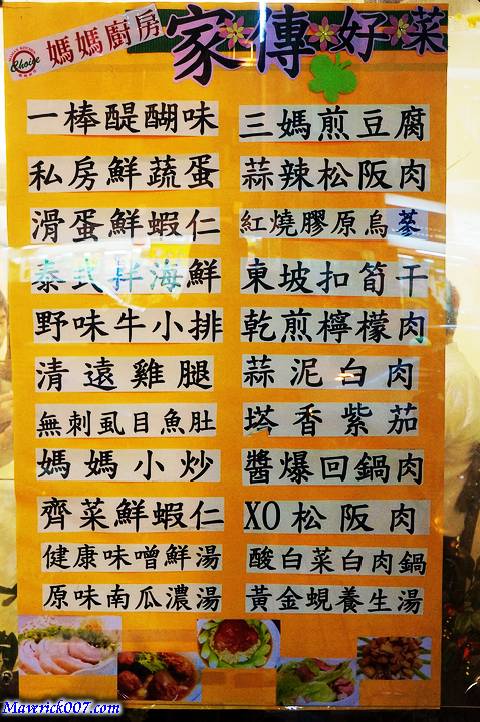 媽媽廚房
Choice
家傳好菜
一棒醍醐味
私房鮮蔬蛋
滑蛋鮮蝦仁
泰式拌海鮮
野味牛小排
清遠雞腿
無刺虱目魚肚
媽媽小炒
薺菜鮮蝦仁
健康味噌鮮湯
原味南瓜濃湯
三媽煎豆腐
蒜辣松阪肉
紅燒膠原烏蔘
東坡扣筍干
乾煎檸檬肉
蒜泥白肉
塔香紫茄
醬爆回鍋肉
XO松阪肉
酸白菜白肉鍋
黃金蜆養生湯
Maverick007.com